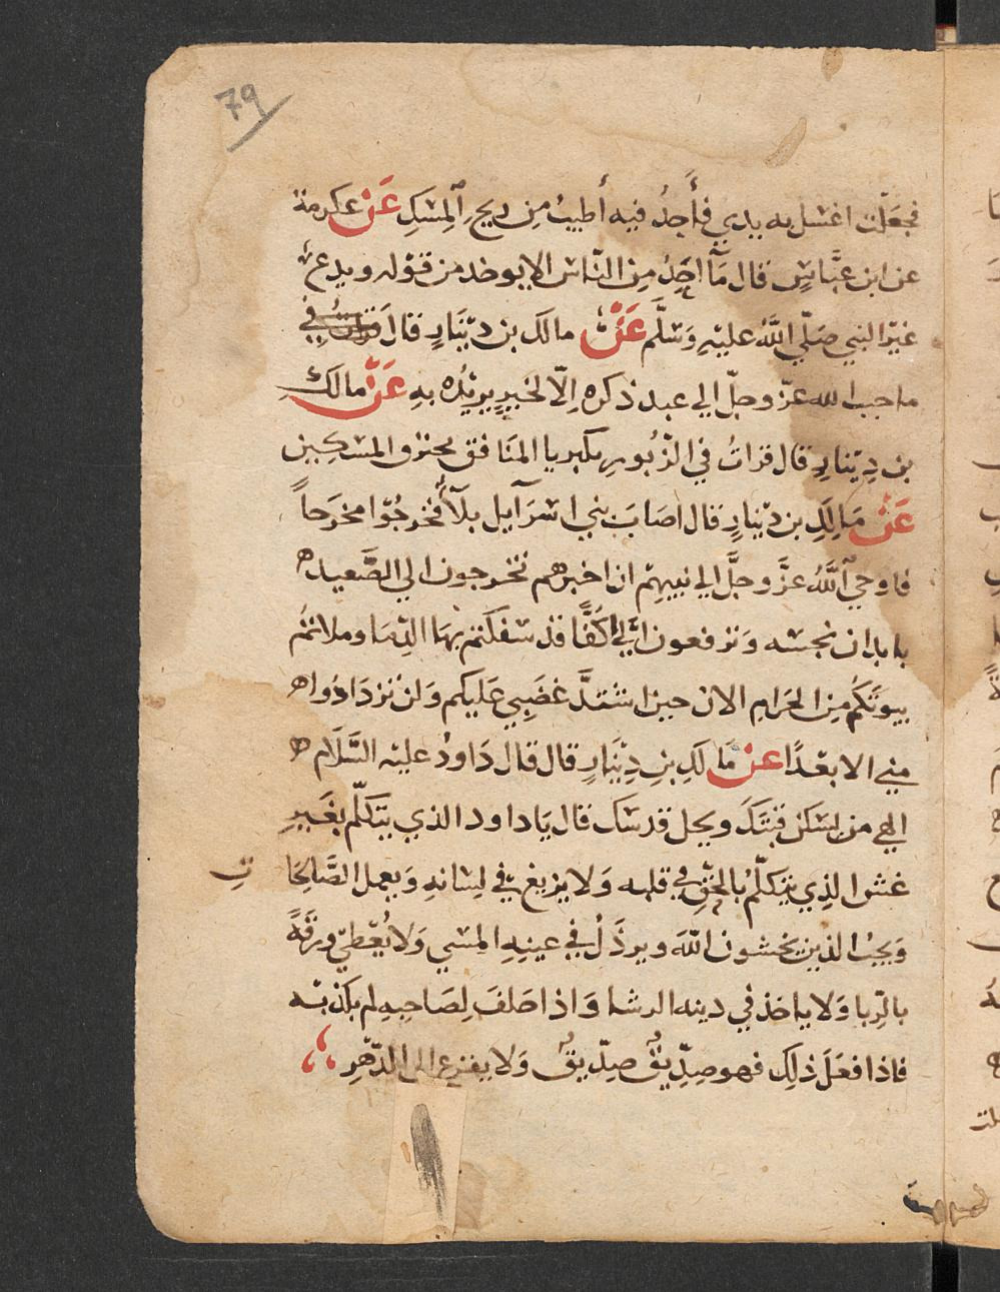 79
فجعَلت اغسل به يدي فأجدُ فيه أطيبُ من ريحِ المِسْكِ عَنْ عكرمة
عن ابن عبَّاسٍ قال مَا احَدٌ مِن النّاس الا يوخد من قوله ويدع
غيرَ النبي صَلّي اللَّهُ عليهِ وَسَلَّم عَنْ مالك بن دينَارٍ قال
ما حبب الله عزّ وجلّ الي عبد ذكره اِلّا لخيرٍ يريدُه بهِ عَنْ مالك
بن دِينارٍ قال قراتُ في الزّبُورِ بكبريا المنَافق يحترق المسكِين
عَنْ مَالِكِ بن دينارٍ قال اصَابَ بني اسرَآيل بلآءٌ فخرجُوا مخرَجاً
فاوحي اللَّهُ عزَّ وجلَّ الي نبيهِمْ ان اخبرهم تخرجون الي الصَّعيد
بابدان نجسه وَترفعون اِلي اكُفًّا قد سَفكتم بهَا الدِّمَا وملاتمُ
بيوتَكُم مِن الحَرامِ الان حين اشتدَّ غضَبِي عَليكم وَلن تزدَادُوا
مني الا بعْدًا عنْ مَالكِ بنِ دِينَارٍ قال قال دَاودُ عليْه السَّلَام
الهي من يسكن قبتكَ ويحل قدسك قال يَاداود الذي يتكلّم بغَيرِ
غش الذِي يتكلّمُ بالحَقِ في قلبه وَلا يزيغ في لِسَانهِ وَيعمل الصَّالحَا
ت
وَيحبُ الذين يخشون اللَّه ويرذَلُ في عينِهِ المسي وَلا يُعْطي ورقَهً
بالرِّبا وَلا ياخذ في دينه الرشا وَاذا حَلفَ لِصَاحبهِ لم يكذبْه
فاذا فعَلَ ذلِكَ فهو صِدِّيقٌ صِدّيقٌ وَلا يفزع الي الدّهْرِ